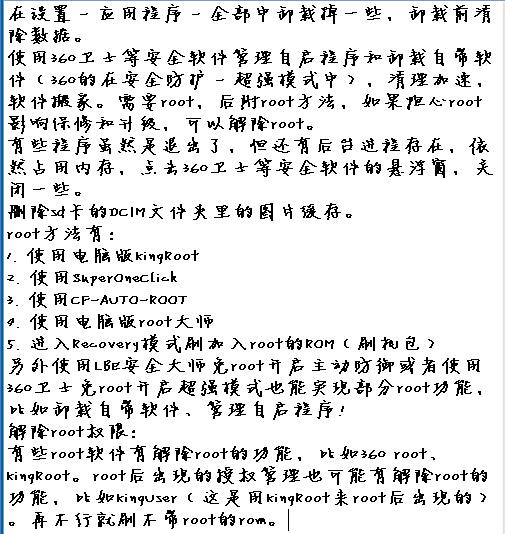 在设置－应用程序－全部中卸载掉一些，卸载前清
除数据。
使用360卫士等安全软件管理自启程序和卸载自带软
件（360的在安全防护－超强模式中），清理加速，
软件搬家。需要root，后附root方法，如果担心root
影响保修和升级，可以解除root。
有些程序虽然是退出了，但还有后台进程存在，依
然占用内存，点击360卫士等安全软件的悬浮窗，关
闭一些。
删除sd卡的DCIM文件夹里的图片缓存。
root方法有：
1. 使用电脑版KingRoot
2. 使用SuperOneClick
3. 使用CF-AUTO-ROOT
4. 使用电脑版root大师
5. 进入Recovery模式刷加入root的ROM（刷机包）
另外使用LBE安全大师免root开启主动防御或者使用
360卫士免root开启超强模式也能实现部分root功能，
比如卸载自带软件、管理自启程序！
解除root权限：
有些root软件有解除root的功能，比如360 root、
KingRoot。root后出现的授权管理也可能有解除root的
功能，比如kinguser（这是用KingRoot来root后出现的）
。再不行就刷不带root的rom。